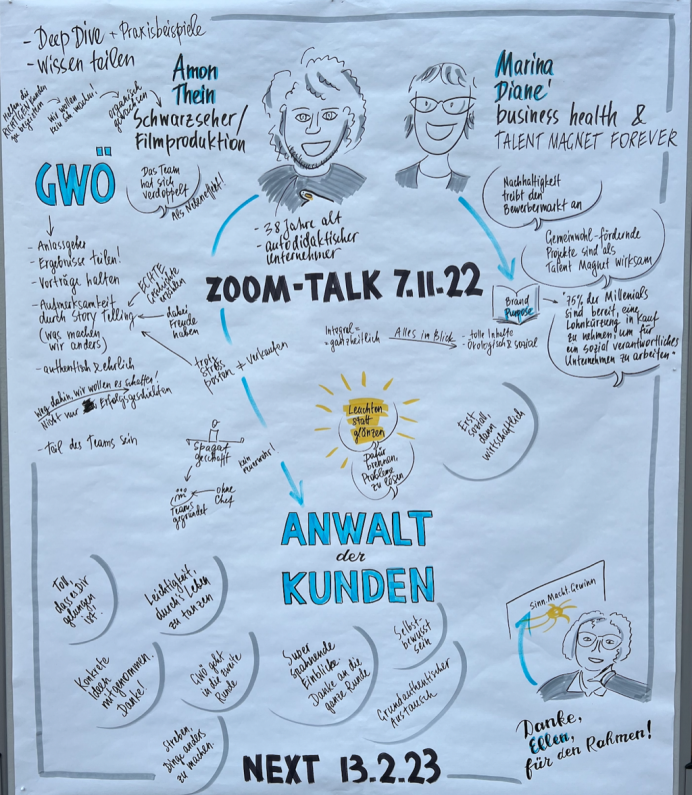 - Deep Dive + Praxisbeispiele
- Wissen teilen
wir wollen
organisch
gewachsen
Amon
Thein
Schwarzseher/
Filmproduktion
Marina
Diane'
business health &
TALENT MAGNET FOREVER
GWÖ
Das Team
hat sich
verdoppelt
als Nebeneffekt!
- 38 Jahre alt
- autodidaktischer
Unternehmer
Nachhaltigkeit
treibt den
Bewerbermarkt an
Gemeinwohl-fördernde
Projekte sind als
Talent Magnet wirksam
- Anlassgeber
- Ergebnisse teilen!
- Vorträge halten
- Aufmerksamkeit
durch Story Telling
(was machen
wir anders)
- authentisch & ehrlich
Weg dahin, wir wollen es schaffen!
Nicht nur Erfolgsgeschichten
- Teil des Teams sein
ECHTE
Geschichte
erzählen
dabei
Freude
haben
ZOOM-TALK 7.11.22
Brand
Purpose
"75% der Millenials
sind bereit, eine
Lohnkürzung in Kauf
zu nehmen! um für
ein sozial verantwortliches
Unternehmen zu arbeiten."
Integral =
= ganzheitlich
Alles im Blick
- tolle Inhalte
- Ökologisch & sozial
+ verkaufen
Leuchten
statt
glänzen
Dafür
brennen,
Probleme
zu lösen
Erst
sozial,
dann
wirtschaftlich
Spagat
geschafft
kein
Feuerwehr!
Teams
gegründet
ohne
Chef
ANWALT
der
KUNDEN
Toll,
dass es Dir
gelungen
ist!
Leichtigkeit,
durch's Leben
zu tanzen
Konkrete
Ideen
mitgenommen.
Danke!
GWÖ geht
in die zweite
Runde
Streben,
Dinge anders
zu machen.
Super
spannende
Einblicke.
Danke an die
ganze Runde
Selbst-
bewusst
sein
Grundauthentischer
Austausch
Sinn.Macht.Gewinn
Danke,
Ellen,
für den Rahmen!
NEXT 13.2.23